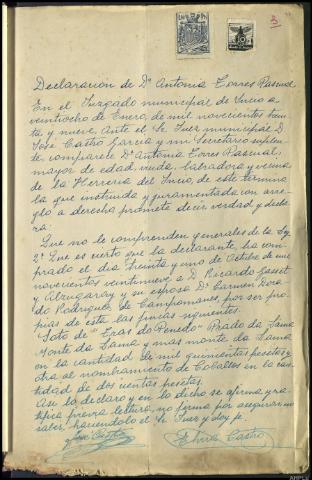 3
Declaración de Dª Antonia Torres Pascual
En el Juzgado municipal de Incio a
veintiocho de Enero, de mil novecientos trein
ta y nueve. Ante el Sr Juez municipal D
Jose Castro Garcia y mi Secretario suplen
te, comparece Dª Antonia Torres Pascual,
mayor de edad, viuda, labradora y vecina
de la Herreria del Incio, de este termino
la que instruida y juramentada con arre
glo a derecho promete decir verdad y decla
ra:
Que no le comprenden generales de la Ley
2º Que es cierto que la declarante, ha com
prado el dia treinta y uno de Octubre de mil
novecientos veintinueve, a D. Ricardo Gasset
y Alzugaray y su esposa Dª Carmen Dora
do Rodriguez de Campomanes, por ser pro
pias de este las fincas siguientes
Soto de "Eras do Penedo" Prado da Lama
Monte da Lama y mas monte da Lama
en la cantidad de mil quinientas pesetas y
otra al nombramiento de Caballos en la can
tidad de doscientas pesetas.
Asi lo declaro y en lo dicho se afirma y ra
tifica previa lectura, no firma por asegurar no
saber, haciendolo el Sr. Juez y doy fe.
Jose Castro
Elvira Castro